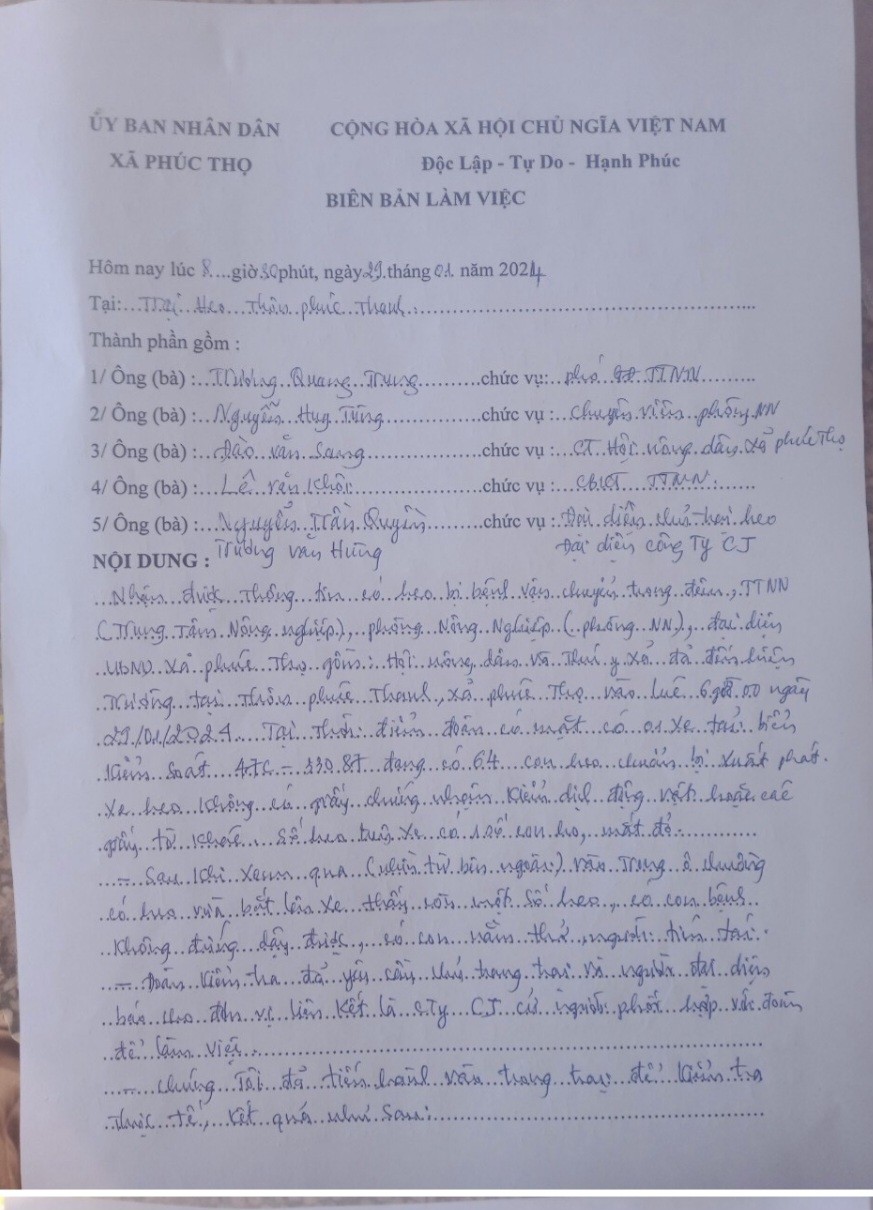 ỦY BAN NHÂN DÂN CỘNG HÒA XÃ HỘI CHỦ NGĨA VIỆT NAM
XÃ PHÚC THỌ Độc Lập - Tự Do - Hạnh Phúc
BIÊN BẢN LÀM VIỆC
Hôm nay lúc 8....giờ 30 phút, ngày 29.tháng 01. năm 2024
Tại:...Trại heo thôn phúc Thanh
Thành phần gồm :
1/ Ông (bà) :...Trương Quang Trung...chức vụ:...phó TTNN
2/ Ông (bà) :...Nguyễn Huy Tùng...chức vụ :...chuyên viên phòng NN
3/ Ông (bà) :...Đào văn Sang...chức vụ :...CT Hội nông dân xã phúc Thọ
4/ Ông (bà) :...Lê văn Khôi...chức vụ :...TTNN
5/ Ông (bà) :...Nguyễn Trần Quyền...chức vụ :...Đại diện chủ trại heo
NỘI DUNG : Trương Văn Hưng Đại diện công Ty CJ
Nhận được thông tin có heo bị bệnh vận chuyển trong đêm, TTNN
(Trung Tâm Nông nghiệp), phòng Nông Nghiệp (phòng NN), đại diện
UBND xã phúc Thọ gồm: Hội nông dân và Thú y xã đã đến hiện
Trường tại Thôn phúc Thanh, xã phúc Thọ vào lúc 6 giờ 00 ngày
29/01/2024. Tại Thời điểm đoàn có mặt có 01 xe tải biển
Kiểm soát 47C - 330.87 đang có 64 con heo chuẩn bị xuất phát.
Xe heo không có giấy chứng nhận kiểm dịch động vật hoặc các
giấy tờ khác. Số heo trên xe có 1 số con ho, mắt đỏ.
- Sau khi xem qua (nhìn từ bên ngoài) vào Trong ô chuồng
có heo vừa bắt lên xe thấy còn một số heo, có con bệnh
không đứng dậy được, có con nằm thở, người tím tái.
- Đoàn kiểm tra đã yêu cầu chủ trang trại và người đại diện
báo cho đơn vị liên kết là CTy CJ cử người phối hợp với đoàn
để làm việc.
- Chúng Tôi đã tiến hành vào trang trại để kiểm tra
thực tế, kết quả như sau: